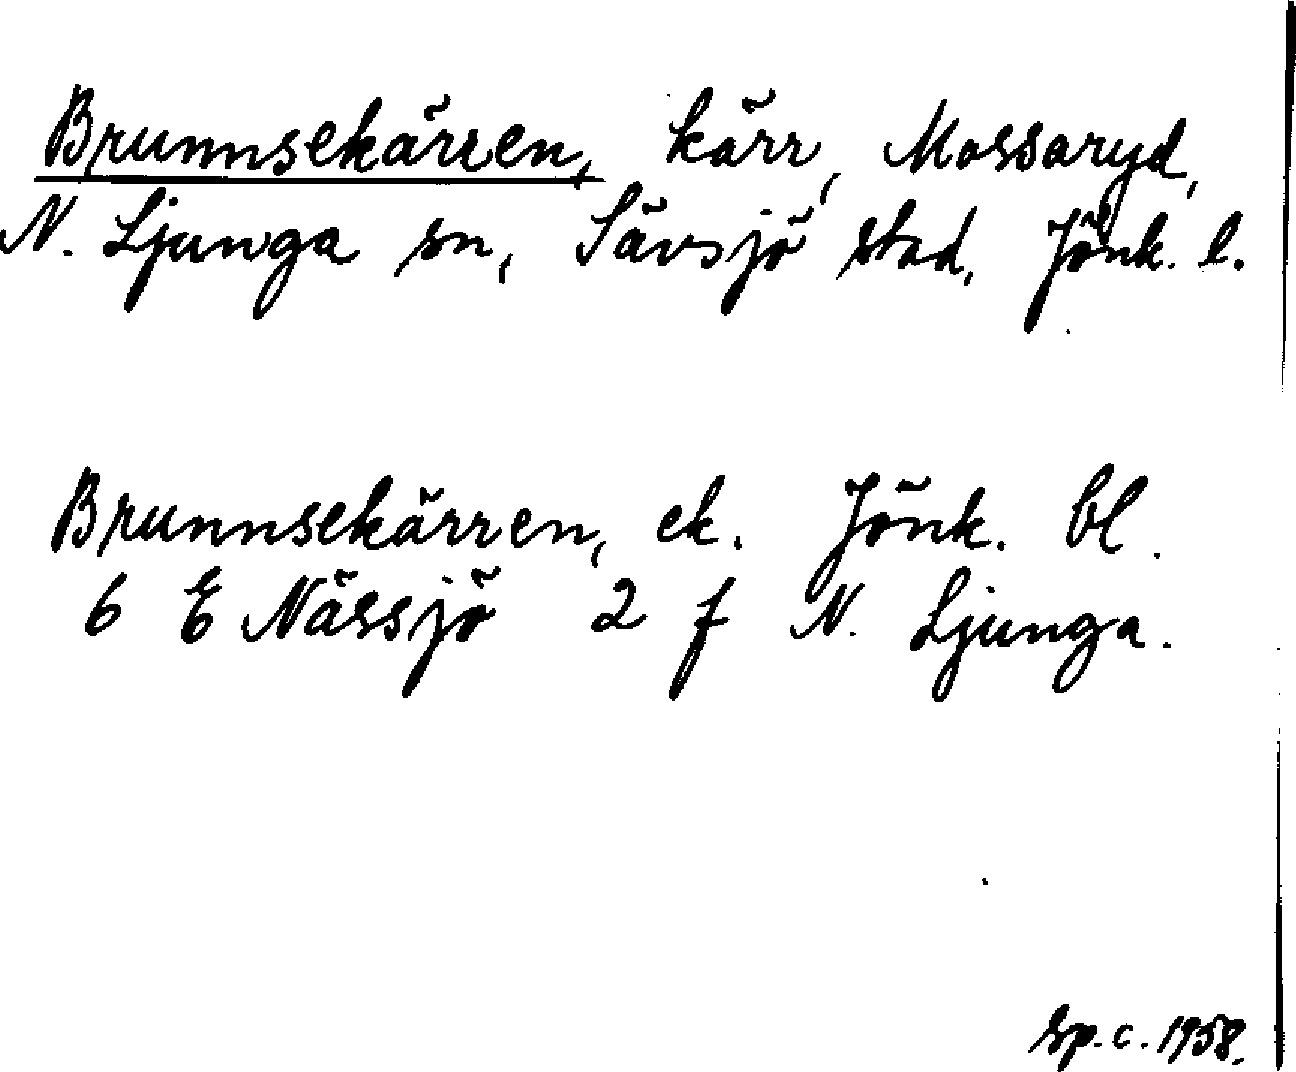 Brunnsekärren, kärr, Mossaryd,
N. Ljunga sn, Sävsjö stad, Jönk. l.
Brunnsekärren, ek. Jönk. bl.
6 E Nässjö 2 f N. Ljunga.
Sp. c. 1958.